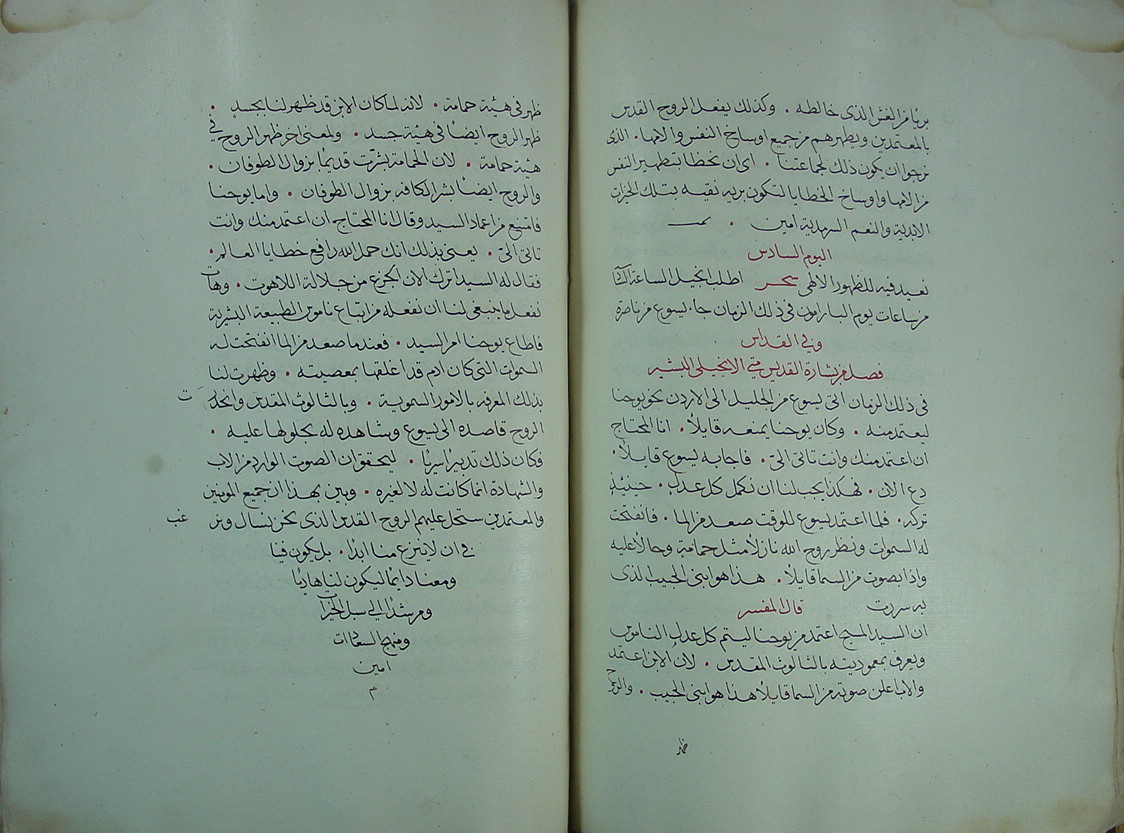 بريا من الغش الذى خالطه . وكذلك يفعل الروح القدس
بالمعتمدين ويطهرهم من جميع اوساخ النفس والامها . الذى
نرجوا ان يكون ذلك لجماعتنا . اى ان نحظا بتطهير النفس
من الامها واوساخ الخطايا لتكون بريه نقيه بتلك الخيرات
الابدية والنعم السرمدية امين .
اليوم السادس
نعيد فيه للظهور الالهى سحر اطلب انجيل الساعة
من ساعات يوم البارامون فى ذلك الزمان جا يسوع من ناصرة
وفى القداس
فصل من بشارة القديس متى الانجيلى البشير
فى ذلك الزمان اتى يسوع من الجليل الى الاردن نحو يوحنا
ليعتمد منه . وكان يوحنا يمنعه قايلاً . انا المحتاج
ان اعتمد منك وانت تاتى الىّ . فاجابه يسوع قايلاً .
دع الان . فهكذا يجب لنا ان نكمل كل عدل . حينيذٍ
تركه . فلما اعتمد يسوع للوقت صعد من الما . فانفتحت
له السموات ونظر روح الله نازلاً مثل حمامة وحالاً عليه
واذا بصوت من السما قايلاً . هذا هو ابنى الحبيب الذى
به سررت قال المفسر
ان السيد المسيح اعتمد من يوحنا ليتم كل عدل الناموس
ويعرف بمعموديته بالثالوث المقدس . لان الابن اعتمد
والاب اعلن صوته من السما قايلاً هذا هو ابنى الحبيب . والروح
ظهر
ظهر فى هيئة حمامة . لانه لما كان الابن قد ظهر لنا بجسد .
ظهر الروح ايضاً فى هيئة جسد . ولمعنى اخر ظهر الروح فى
هيئة حمامة . لان الحمامة بشرت قديماً بزوال الطوفان .
والروح ايضاً بشر الكافه بزوال الطوفان . واما يوحنا
فامتنع من اعماد السيد وقال انا المحتاج ان اعتمد منك وانت
تاتى الىّ . يعنى بذلك انك حمل الله رافع خطايا العالم .
فقال له السيد اترك الان الجزع من جلالة اللاهوت . وهات
نفعل ما ينبغى لنا ان نفعله من اتباع ناموس الطبيعة البشرية
فاطاع يوحنا امر السيد . فعندما صعد من الما انفتحت له
السموات التى كان ادم قد اغلقها بمعصيته . وظهرت لنا
بذلك المعرفه بالامور السموية . وبالثالوث المقدس وانحدرت
الروح قاصده الى يسوع وشاهده له بحلولها عليه .
فكان ذلك تدبيراً سرياً . ليتحققوا ان الصوت الوارد من الاب
والشهادة انما كانت له لا لغيره . وبين بهذا ان جميع المومنين
والمعتمدين ستحل عليهم الروح القدس الذى نحن نسال ونرغب
فى ان لا تنزع منا ابداً . بل يكون فينا
ومعنا دايماً ليكون لنا هادياً
ومرشداً الى سبل الخيرات
ومنهج السعادات
امين
م